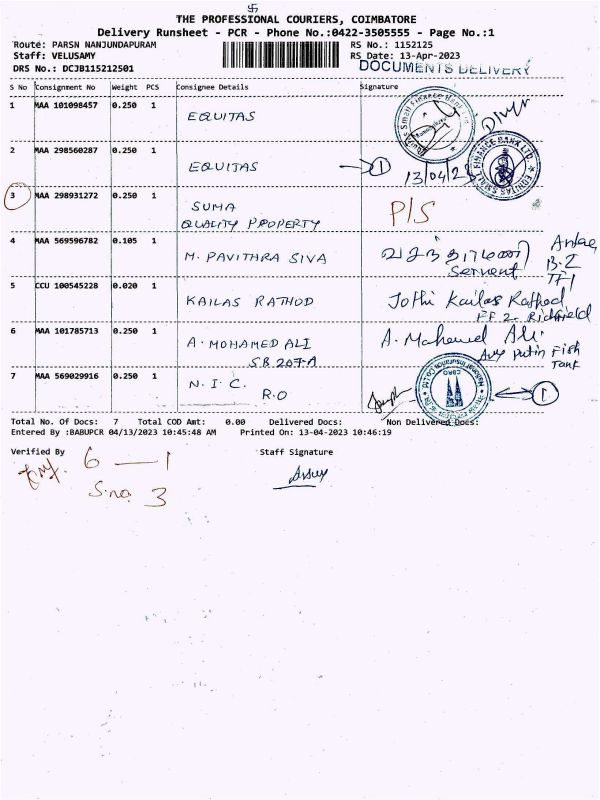 THE PROFESSIONAL COURIERS, COIMBATORE
Delivery Runsheet - PCR - Phone No.:0422-3505555 - Page No.:1
Route: PARSN NANJUNDAPURAM
RS No.: 1152125
Staff: VELUSAMY
RS Date: 13-Apr-2023
DRS No.: DCJB115212501
DOCUMENTS DELIVERY
S No Consignment No Weight PCS Consignee Details Signature
1 MAA 101098457 0.250 1 EQUITAS
2 MAA 298560287 0.250 1 EQUITAS 1 13/04/23
EQUITAS SMALL FINANCE BANK LTD.
3 MAA 298931272 0.250 1 SUMA P/S
QUALITY PROPERTY
4 MAA 569596782 0.105 1 M. PAVITHRA SIVA
Servent
5 CCU 100545228 0.020 1 KAILAS RATHOD Jothi Kailas Rathod
FF 2
6 MAA 101785713 0.250 1 A. MOHAMED ALI A. Mohamed Ali.
SB 207-A
Fish
Tank
7 MAA 569029916 0.250 1 N. I. C. 1
R.O
Total No. Of Docs: 7 Total COD Amt: 0.00 Delivered Docs: Non Delivered Docs:
Entered By :BABUPCR 04/13/2023 10:45:48 AM Printed On: 13-04-2023 10:46:19
Verified By Staff Signature
6 — 1
S.no 3